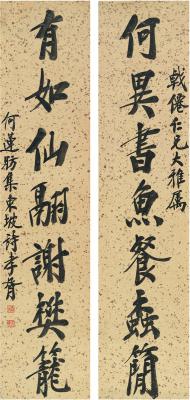 何異書魚餐蠹簡
戟僊仁兄大雅属
有如仙翮謝樊籠
何蓮舫集東坡詩孝胥